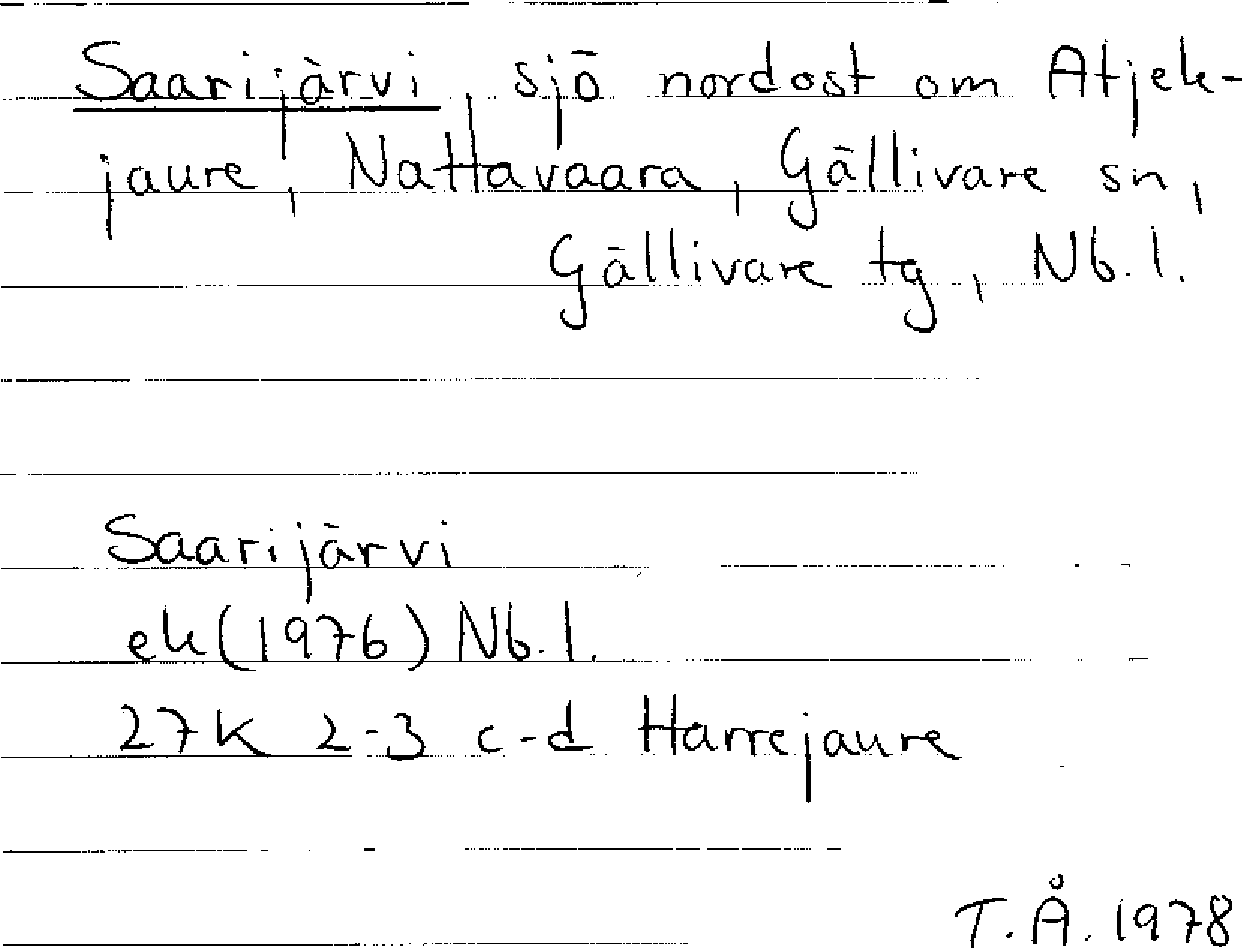 Saarijärvi, sjö nordost om Atjek-
jaure, Nattavaara, Gällivare sn,
Gällivare tg, Nb.l.
Saarijärvi
ek(1976) Nb.l.
27K 2-3 c-d Harrejaure
T.Å. 1978